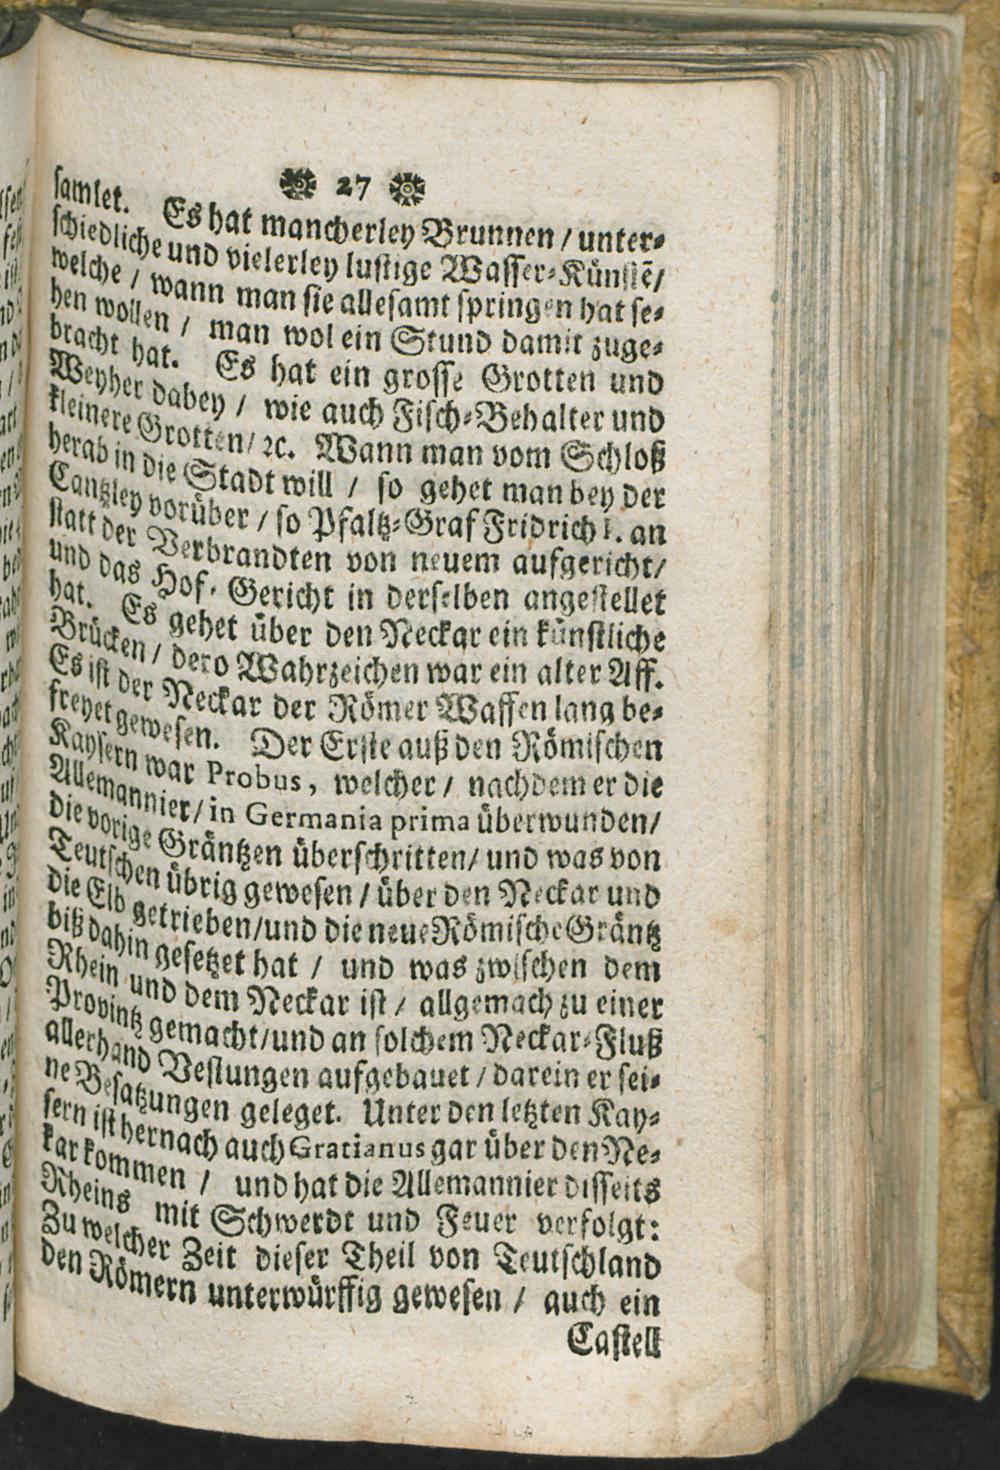 27
samlet. Es hat mancherley Brunnen / unter-
schiedliche und vielerley lustige Wasser-Künstē /
welche / wann man sie allesamt springen hat se-
hen wollen / man wol ein Stund damit zuge-
bracht hat. Es hat ein grosse Grotten und
Weyher dabey / wie auch Fisch-Behalter und
kleinere Grotten / ꝛc. Wann man vom Schloß
herab in die Stadt will / so gehet man bey der
Cantzley vorüber / so Pfaltz-Graf Fridrich I. an
statt der Verbrandten von neuem aufgericht /
und das Hof-Gericht in derselben angestellet
hat. Es gehet über den Neckar ein künstliche
Brücken / dero Wahrzeichen war ein alter Aff.
Es ist der Neckar der Römer Waffen lang be-
freyet gewesen. Der Erste auß den Römischen
Kaysern war Probus, welcher / nachdem er die
Allemannier / in Germania prima überwunden /
die vorige Gräntzen überschritten / und was von
Teutschen übrig gewesen / über den Neckar und
die Elb getrieben / und die neue Römische Gräntz
biß dahin gesetzet hat / und was zwischen dem
Rhein und dem Neckar ist / allgemach zu einer
Provintz gemacht / und an solchem Neckar-Fluß
allerhand Vestungen aufgebauet / darein er sei-
ne Besatzungen geleget. Unter den letzten Kay-
sern ist hernach auch Gratianus gar über den Ne-
kar kommen / und hat die Allemannier disseits
Rheins mit Schwerdt und Feuer verfolgt:
Zu welcher Zeit dieser Theil von Teutschland
den Römern unterwürffig gewesen / auch ein
Castell